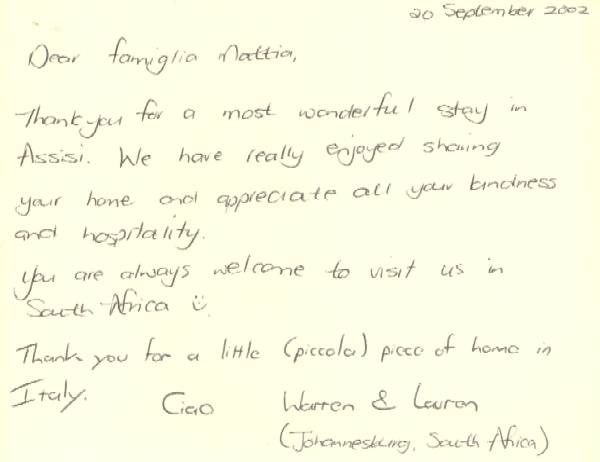 20 September 2002
Dear famiglia Mattia,
Thank you for a most wonderful stay in
Assisi. We have really enjoyed sharing
your home and appreciate all your kindness
and hospitality.
You are always welcome to visit us in
South Africa ☺.
Thank you for a little (piccola) piece of home in
Italy.
Ciao Warren & Lauren
(Johannesburg, South Africa)